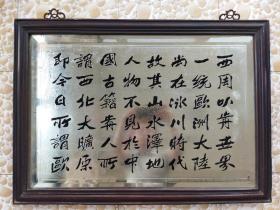 西周以前世界
一统欧洲大陸
尚在冰川時代
故其山水澤地
人物不見於中
國古籍古人所
謂西北大曠原
即今日所謂歐